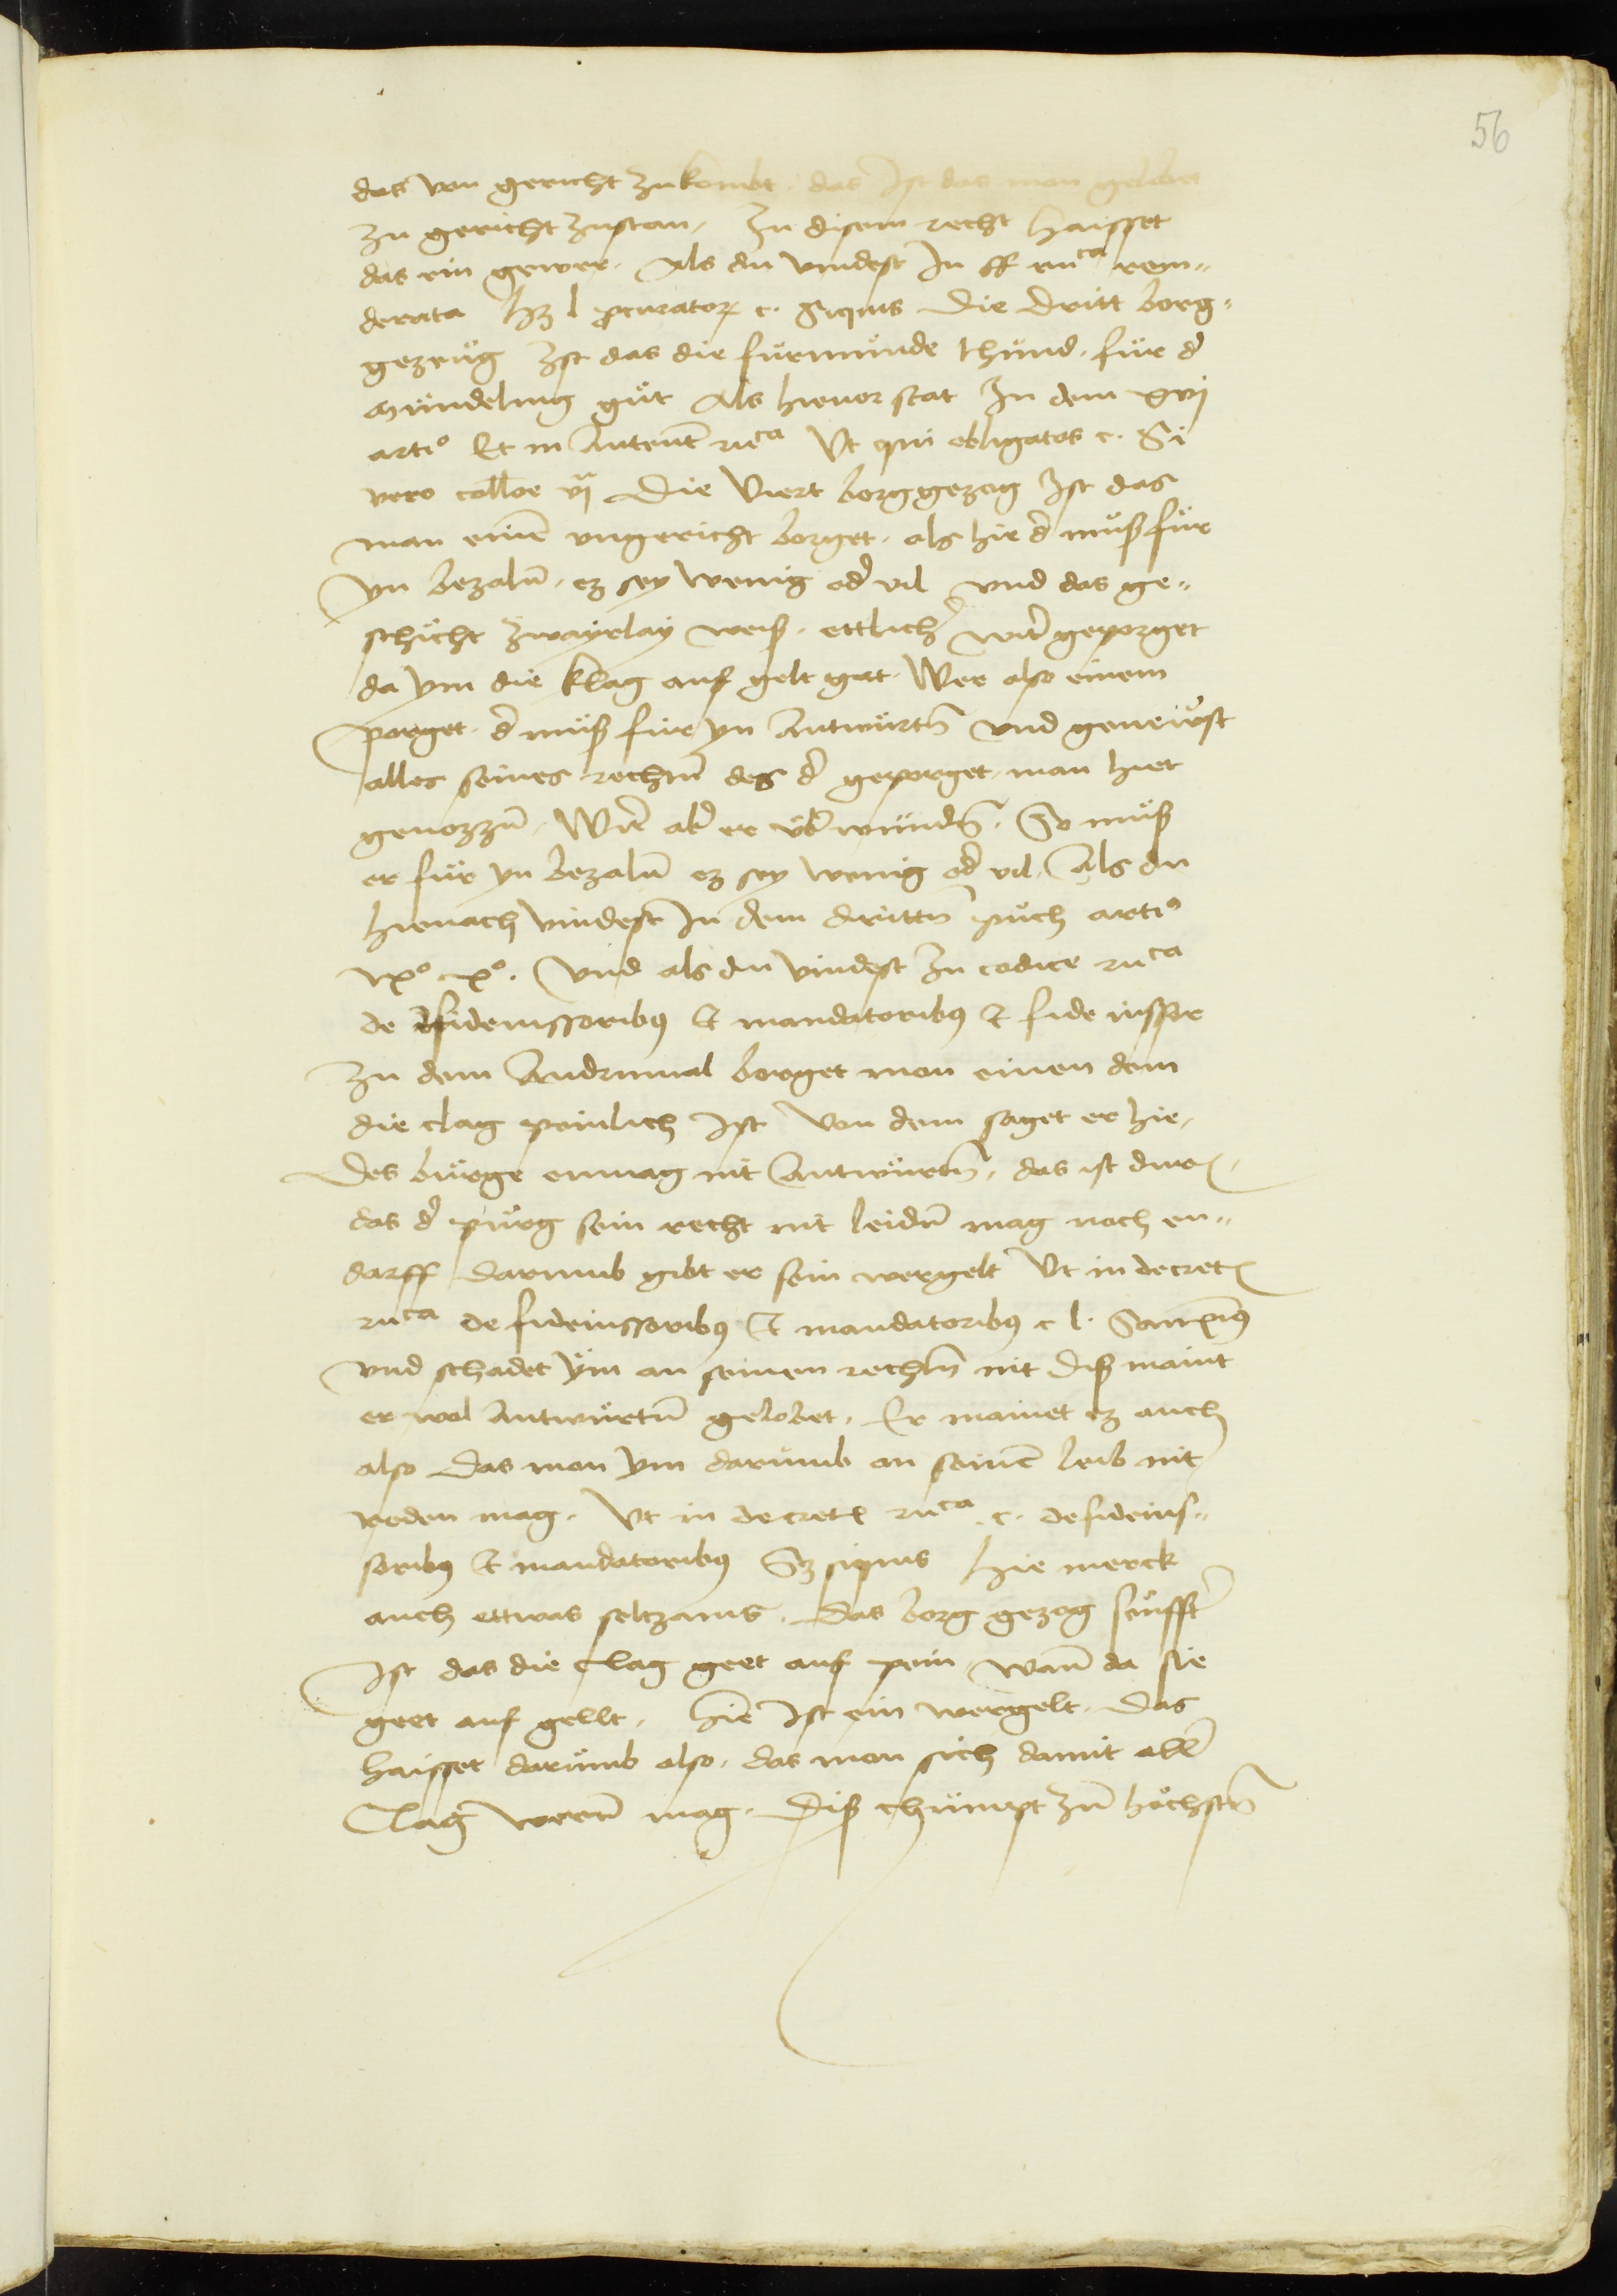 56
das von gericht zukombt. das Ist das man gelobet
zu gericht zustan. In disem recht haisset
das ein gewer. Als du vindest In ff ruca rem
derata hz l pcurator c. Siquis Die dritt borg
gezeüg Ist das die fürmünde thünd. für d
mündeling güt Als hieuor stat In dem xvj
arti° Et in Autent ruca Ut qui obligatos c. Si
vero colloe vj Die Viert borggezog Ist das
man einē vngericht borget. als hie d müß für
yn bezalñ. ez sey wenig od vil vnd das ge
schicht zwayrlay weiß. ettlich wirt geporget
da ym die klag auf gelt gat. Wer also einem
porget. d müß für yn Antwürtñ vnd geneüst
alles seines rechtñ des d geporget man hiet
genozzñ. Wirt ab er üb wundñ. So müß
er für yn bezalñ ez sey wenig od vil. Als du
hienach vindest In dem drittñ püch arti°
ix° x°. Vnd als du vindest In codice ruca
de fideiussoribus et mandatoribus et fideiussor
Zu dem Andrmal borget man einen dem
die clag peinlich Ist Von dem saget er hie.
Des bürge enmag nit Antwürtñ. das ist
das d pürg sein recht nit leidñ mag noch en
darff Darumb gibt er sein wergelt Ut in decret
ruca de fideiussoribus et mandatoribus c l.
vnd schadet ym an seinen rechtñ nit Diß maint
er wol Antwürtñ gelobet. Er mainet ez auch
also Das man ym darumb an seinē leib nit
reden mag. Ut in decret ruca. c. de fideius
soribus et mandatoribus Sz siquis Hie merck
auch ettwas seltzams. Das borg gezog
Ist das die Clag geet auf pein wañ da sie
geet auf gellt. hie Ist ein wergelt. Das
haisset darümb also. das man sich damit all
Clag werñ mag. Diß chümpt zū höchstñ